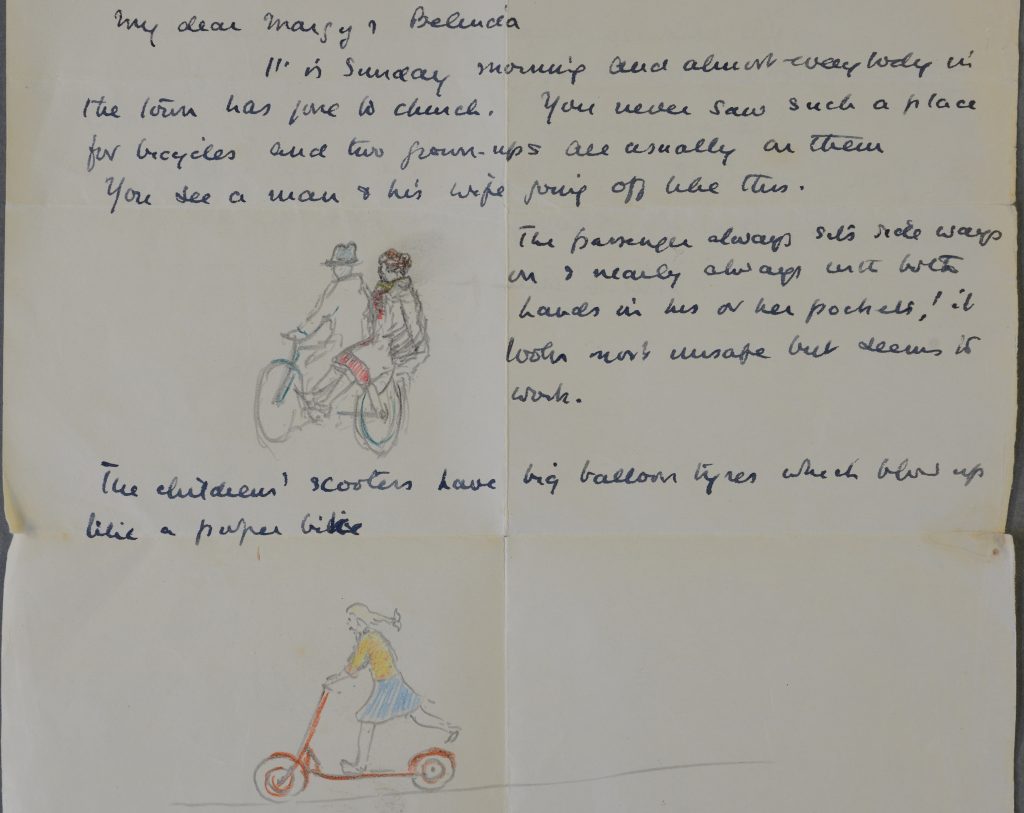 My dear Margy & Belinda
It is Sunday morning and almost everybody in
the town has gone to church. You never saw such a place
for bicycles and two grown-ups are usually on them
You see a man & his wife going off like this.
The passenger always sits side ways
on & nearly always with both
hands in his or her pockets! it
looks most unsafe but seems to
work.
The childrens' scooters have big balloon tyres which blow up
like a proper bike